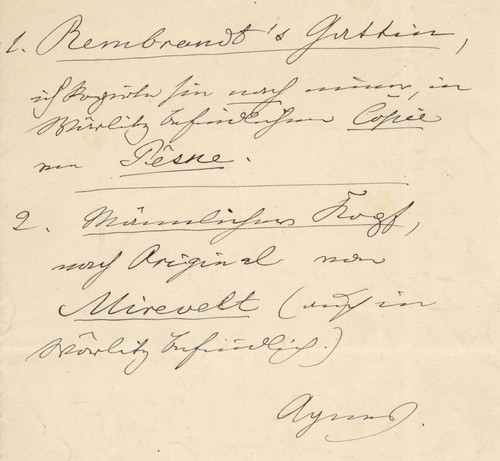 1. Rembrandt's Gattin,
ich kopirte sie nach einer, in
Wörlitz befindlichen Copie
von Pèsne.
2. Männlicher Kopf,
nach Original von
Mirevelt (auch in
Wörlitz befindlich.)
Agnes.